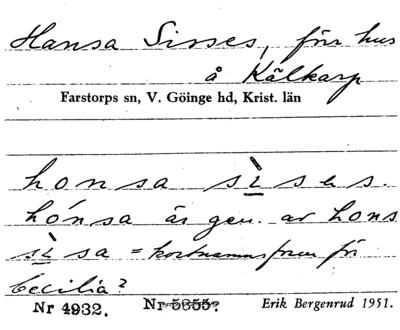 Hansa Sisses, förr hus
å Kälkarp
Farstorps sn, V. Göinge hd, Krist. län
honsa sìses.
hónsa är gen. av hons
sìsa = kortnamnsform för
Cecilia?
Nr 4932. Nr 5855? Erik Bergenrud 1951.